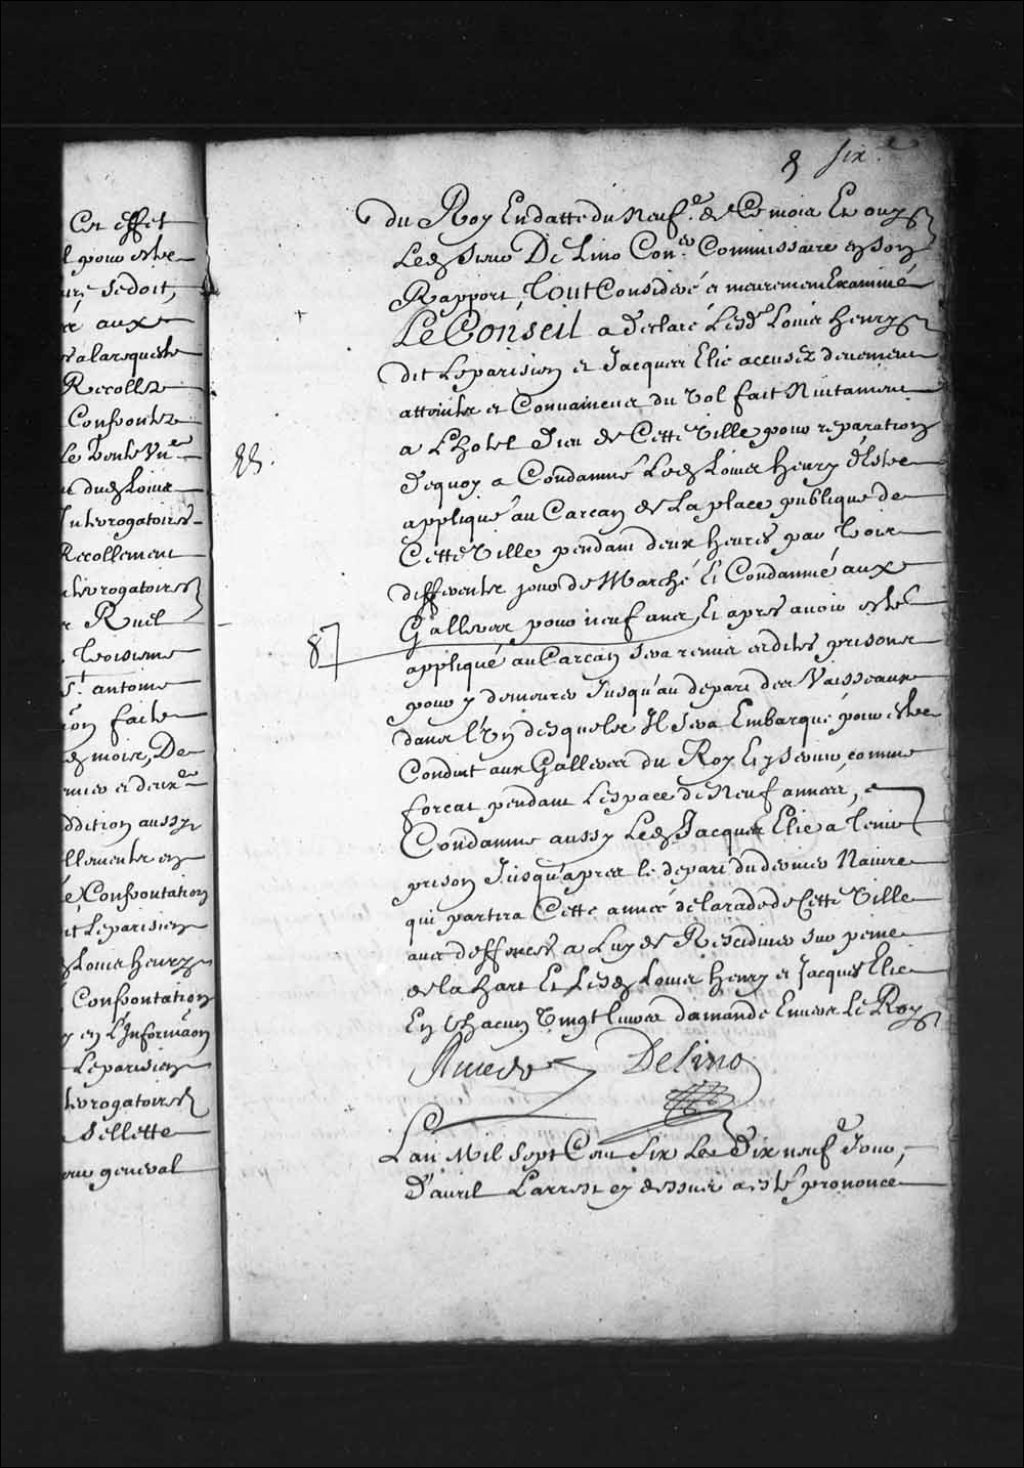 Cet effet
l pour estre
ure sedoit,
er aux
s alarequeste
Recollez
Confrontez
le trente Un.e
n dud. Louis
Interrogatoires
Recollement
nterrogatoires
r Ruel
troisieme
St. antoine
ion faite
mois, De
rnier et deux.e
ddition aussy
llements en
e Confrontation
it Leparisien
Louis henry
Confrontation
y en L'Informãon
Leparisien
terrogatoires
Sellette
eur general
8 six.e
du Roy En datte du Neuf.e de Ce mois Et ouy
Led. Sieur De Lino Con.er Commissaire en son
Rapport, tout Consideré et meurement Examiné
Le Conseil a declaré Lesd. Louis henry
dit Leparisien et Jacques Elie accusez deuement
atteints et Convaincus du vol fait Nuitament
a L'hotel Dieu de Cette Ville pour reparation
dequoy a Condamné Led. Louis henry d'estre
appliqué au Carcan de La place publique de
Cette Ville pendant deux heures par trois
differents jours de Marché Et Condamné aux
Galleres pour neuf ans, Et apres avoir esté
87
appliqué au Carcan sera remis esdites prisons
pour y demeurer Jusqu'au depart des Vaisseaux
dans l'Un desquels Il sera Embarqué pour estre
Conduit aux Galleres du Roy Et y Servir, comme
forcat pendant L'espace de Neuf années, a
Condamne aussy Led. Jacques Elie a tenir
prison Jusqu'apres le depart du dernier Navire
qui partira Cette année de la rade de Cette Ville
avec deffences a Luy de Rescidiver sur peine
de la hart Et Lesd. Louis henry et Jacques Elie
En Chacun Vingt livres damande Envers Le Roy
DeLino
L'an Mil Sept Cent Six Le Dix neuf.e Jour,
D'auril L'arrest cy dessus a esté prononcé